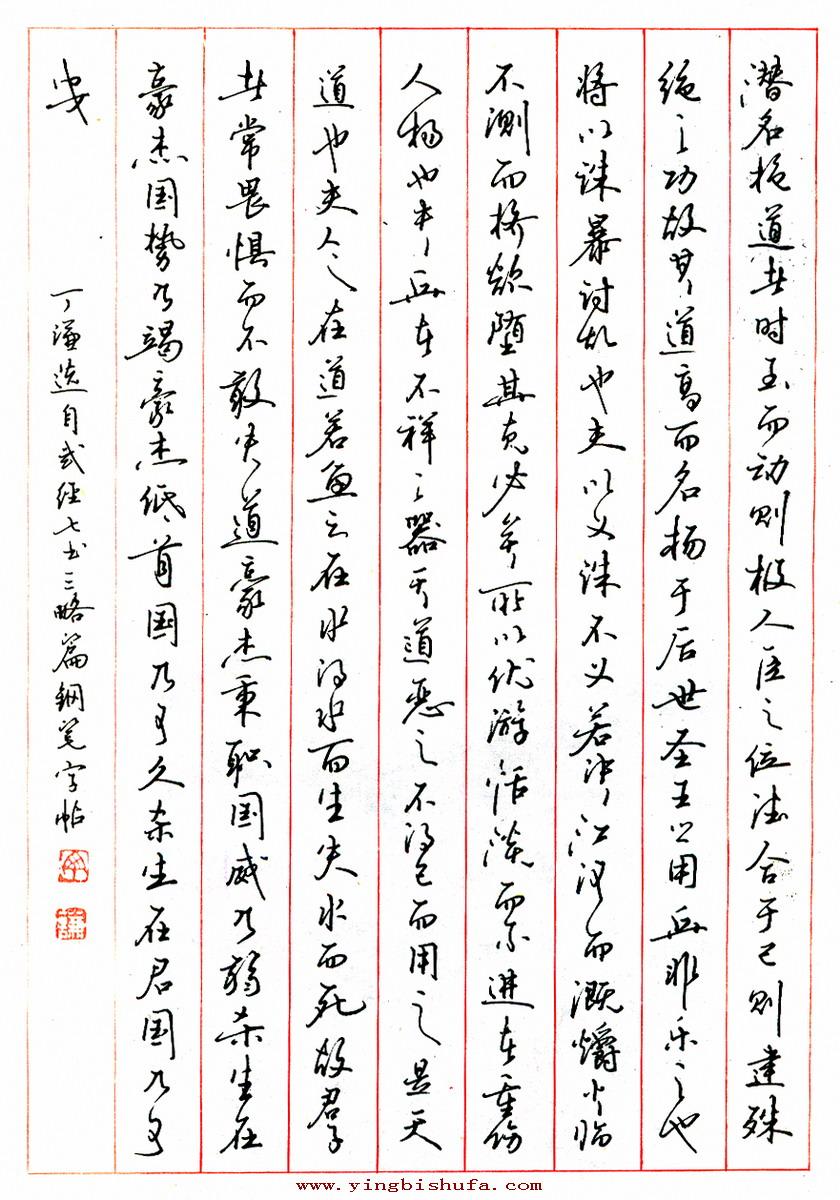 潜名抱道者时至而动则极人臣之位德合于己则建殊
绝之功故其道高而名扬于后世圣王之用兵非乐之也
将以诛暴讨乱也夫以义诛不义若决江河而溉爝火临
不测而挤欲堕其克必矣所以优游恬淡而不进者重伤
人物也夫兵者不祥之器天道恶之不得已而用之是天
道也夫人之在道若鱼之在水得水而生失水而死故君子
者常畏惧而不敢失道豪杰秉职国威乃弱杀生在
豪杰国势乃竭豪杰低首国乃可久杀生在君国乃可
安
丁谦选自武经七书三略篇钢笔字帖
www.yingbishufa.com